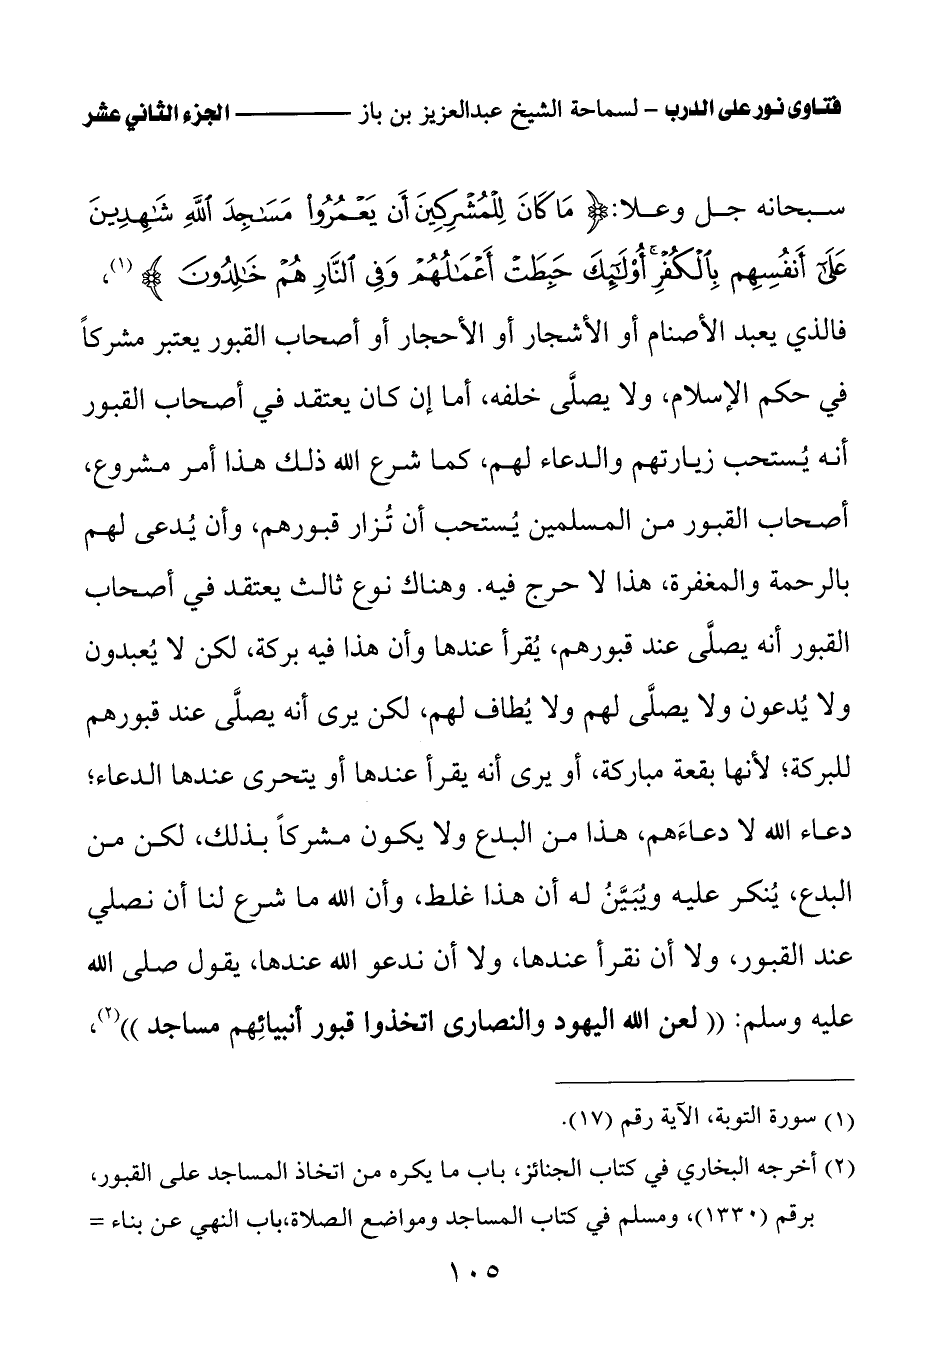 فتاوى نور على الدرب - لسماحة الشيخ عبدالعزيز بن باز ــــــــــ الجزء الثاني عشر
سبحانه جل وعلا: ﴿ مَا كَانَ لِلْمُشْرِكِينَ أَن يَعْمُرُوا۟ مَسَـٰجِدَ ٱللَّهِ شَـٰهِدِينَ
عَلَىٰٓ أَنفُسِهِم بِٱلْكُفْرِ ۚ أُو۟لَـٰٓئِكَ حَبِطَتْ أَعْمَـٰلُهُمْ وَفِى ٱلنَّارِ هُمْ خَـٰلِدُونَ ﴾(١)،
فالذي يعبد الأصنام أو الأشجار أو الأحجار أو أصحاب القبور يعتبر مشركاً
في حكم الإسلام، ولا يصلَّى خلفه، أما إن كان يعتقد في أصحاب القبور
أنه يُستحب زيارتهم والدعاء لهم، كما شرع الله ذلك هذا أمر مشروع،
أصحاب القبور من المسلمين يُستحب أن تُزار قبورهم، وأن يُدعى لهم
بالرحمة والمغفرة، هذا لا حرج فيه. وهناك نوع ثالث يعتقد في أصحاب
القبور أنه يصلَّى عند قبورهم، يُقرأ عندها وأن هذا فيه بركة، لكن لا يُعبدون
ولا يُدعون ولا يصلَّى لهم ولا يُطاف لهم، لكن يرى أنه يصلَّى عند قبورهم
للبركة؛ لأنها بقعة مباركة، أو يرى أنه يقرأ عندها أو يتحرى عندها الدعاء؛
دعاء الله لا دعاءَهم، هذا من البدع ولا يكون مشركاً بذلك، لكن من
البدع، يُنكر عليه ويُبَيَّنُ له أن هذا غلط، وأن الله ما شرع لنا أن نصلي
عند القبور، ولا أن نقرأ عندها، ولا أن ندعو الله عندها، يقول صلى الله
عليه وسلم: (( لعن الله اليهود والنصارى اتخذوا قبور أنبيائِهم مساجد ))(٢)،
(١) سورة التوبة، الآية رقم (١٧).
(٢) أخرجه البخاري في كتاب الجنائز، باب ما يكره من اتخاذ المساجد على القبور،
برقم (١٣٣٠)، ومسلم في كتاب المساجد ومواضع الصلاة،باب النهي عن بناء =
١٠٥